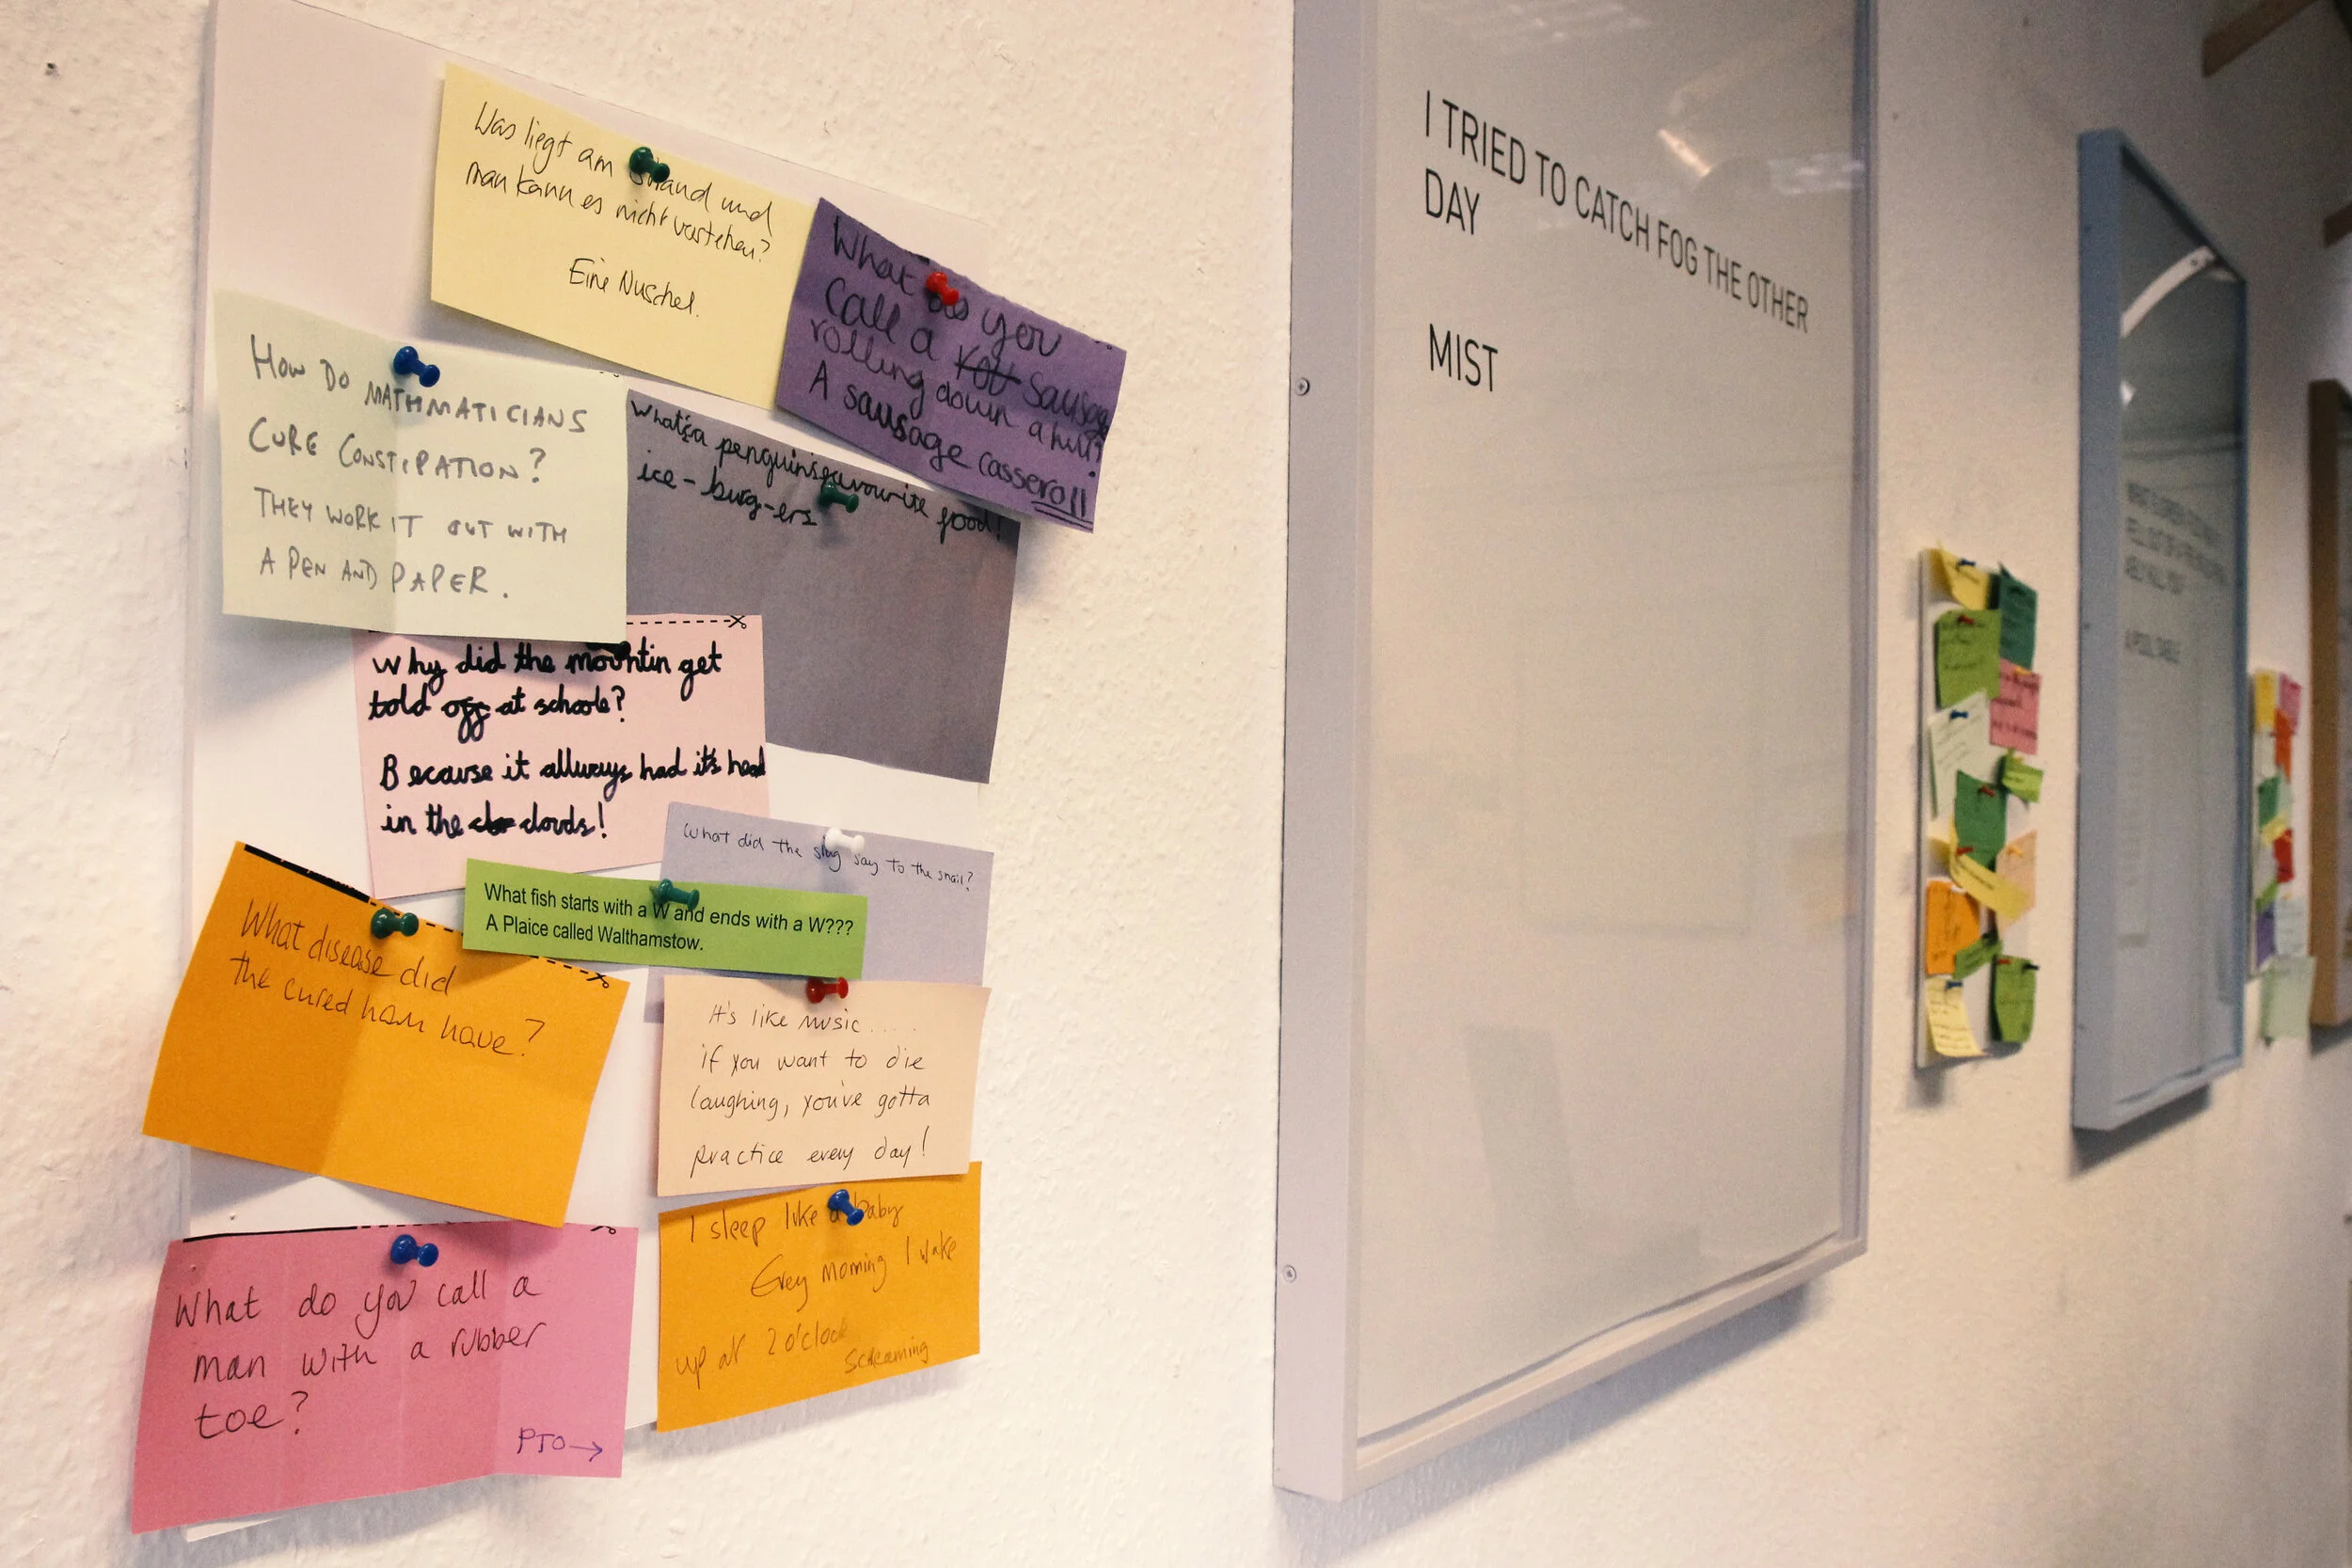 Was liegt am Strand und
man kann es nicht verstehen?
Eine Nuschel.
What do you
call a you sausage
rolling down a hill?
A sausage casseroll
HOW DO MATHMATICIANS
CURE CONSTIPATION?
THEY WORK IT OUT WITH
A PEN AND PAPER.
What's a penguins favourite food!
ice-burg-ers
Why did the mountin get
told off at schoole?
Because it allways had it's head
in the clouds!
What did the slug say to the snail?
What fish starts with a W and ends with a W???
A Plaice called Walthamstow.
What disease did
the cured ham have?
It's like music.....
if you want to die
laughing, you've gotta
practice every day!
I sleep like a baby
Every morning I wake
up at 2 o'clock
Screaming
What do you call a
man with a rubber
toe?
PTO→
I TRIED TO CATCH FOG THE OTHER
DAY
MIST
A POOL TABLE